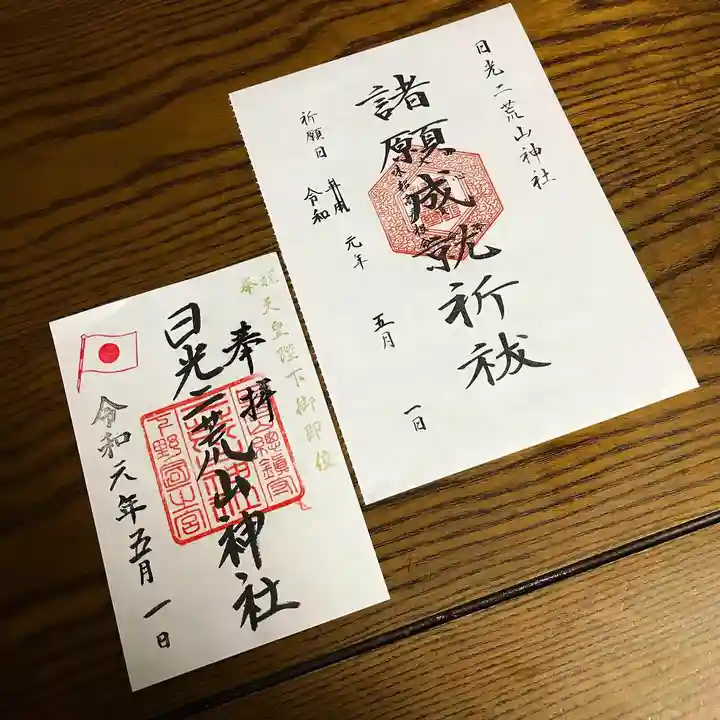 日光二荒山神社
諸願成就祈祓
祈願日 令和 元年 五月 一日
奉祝天皇陛下御即位
奉拝
日光二荒山神社
令和元年五月一日